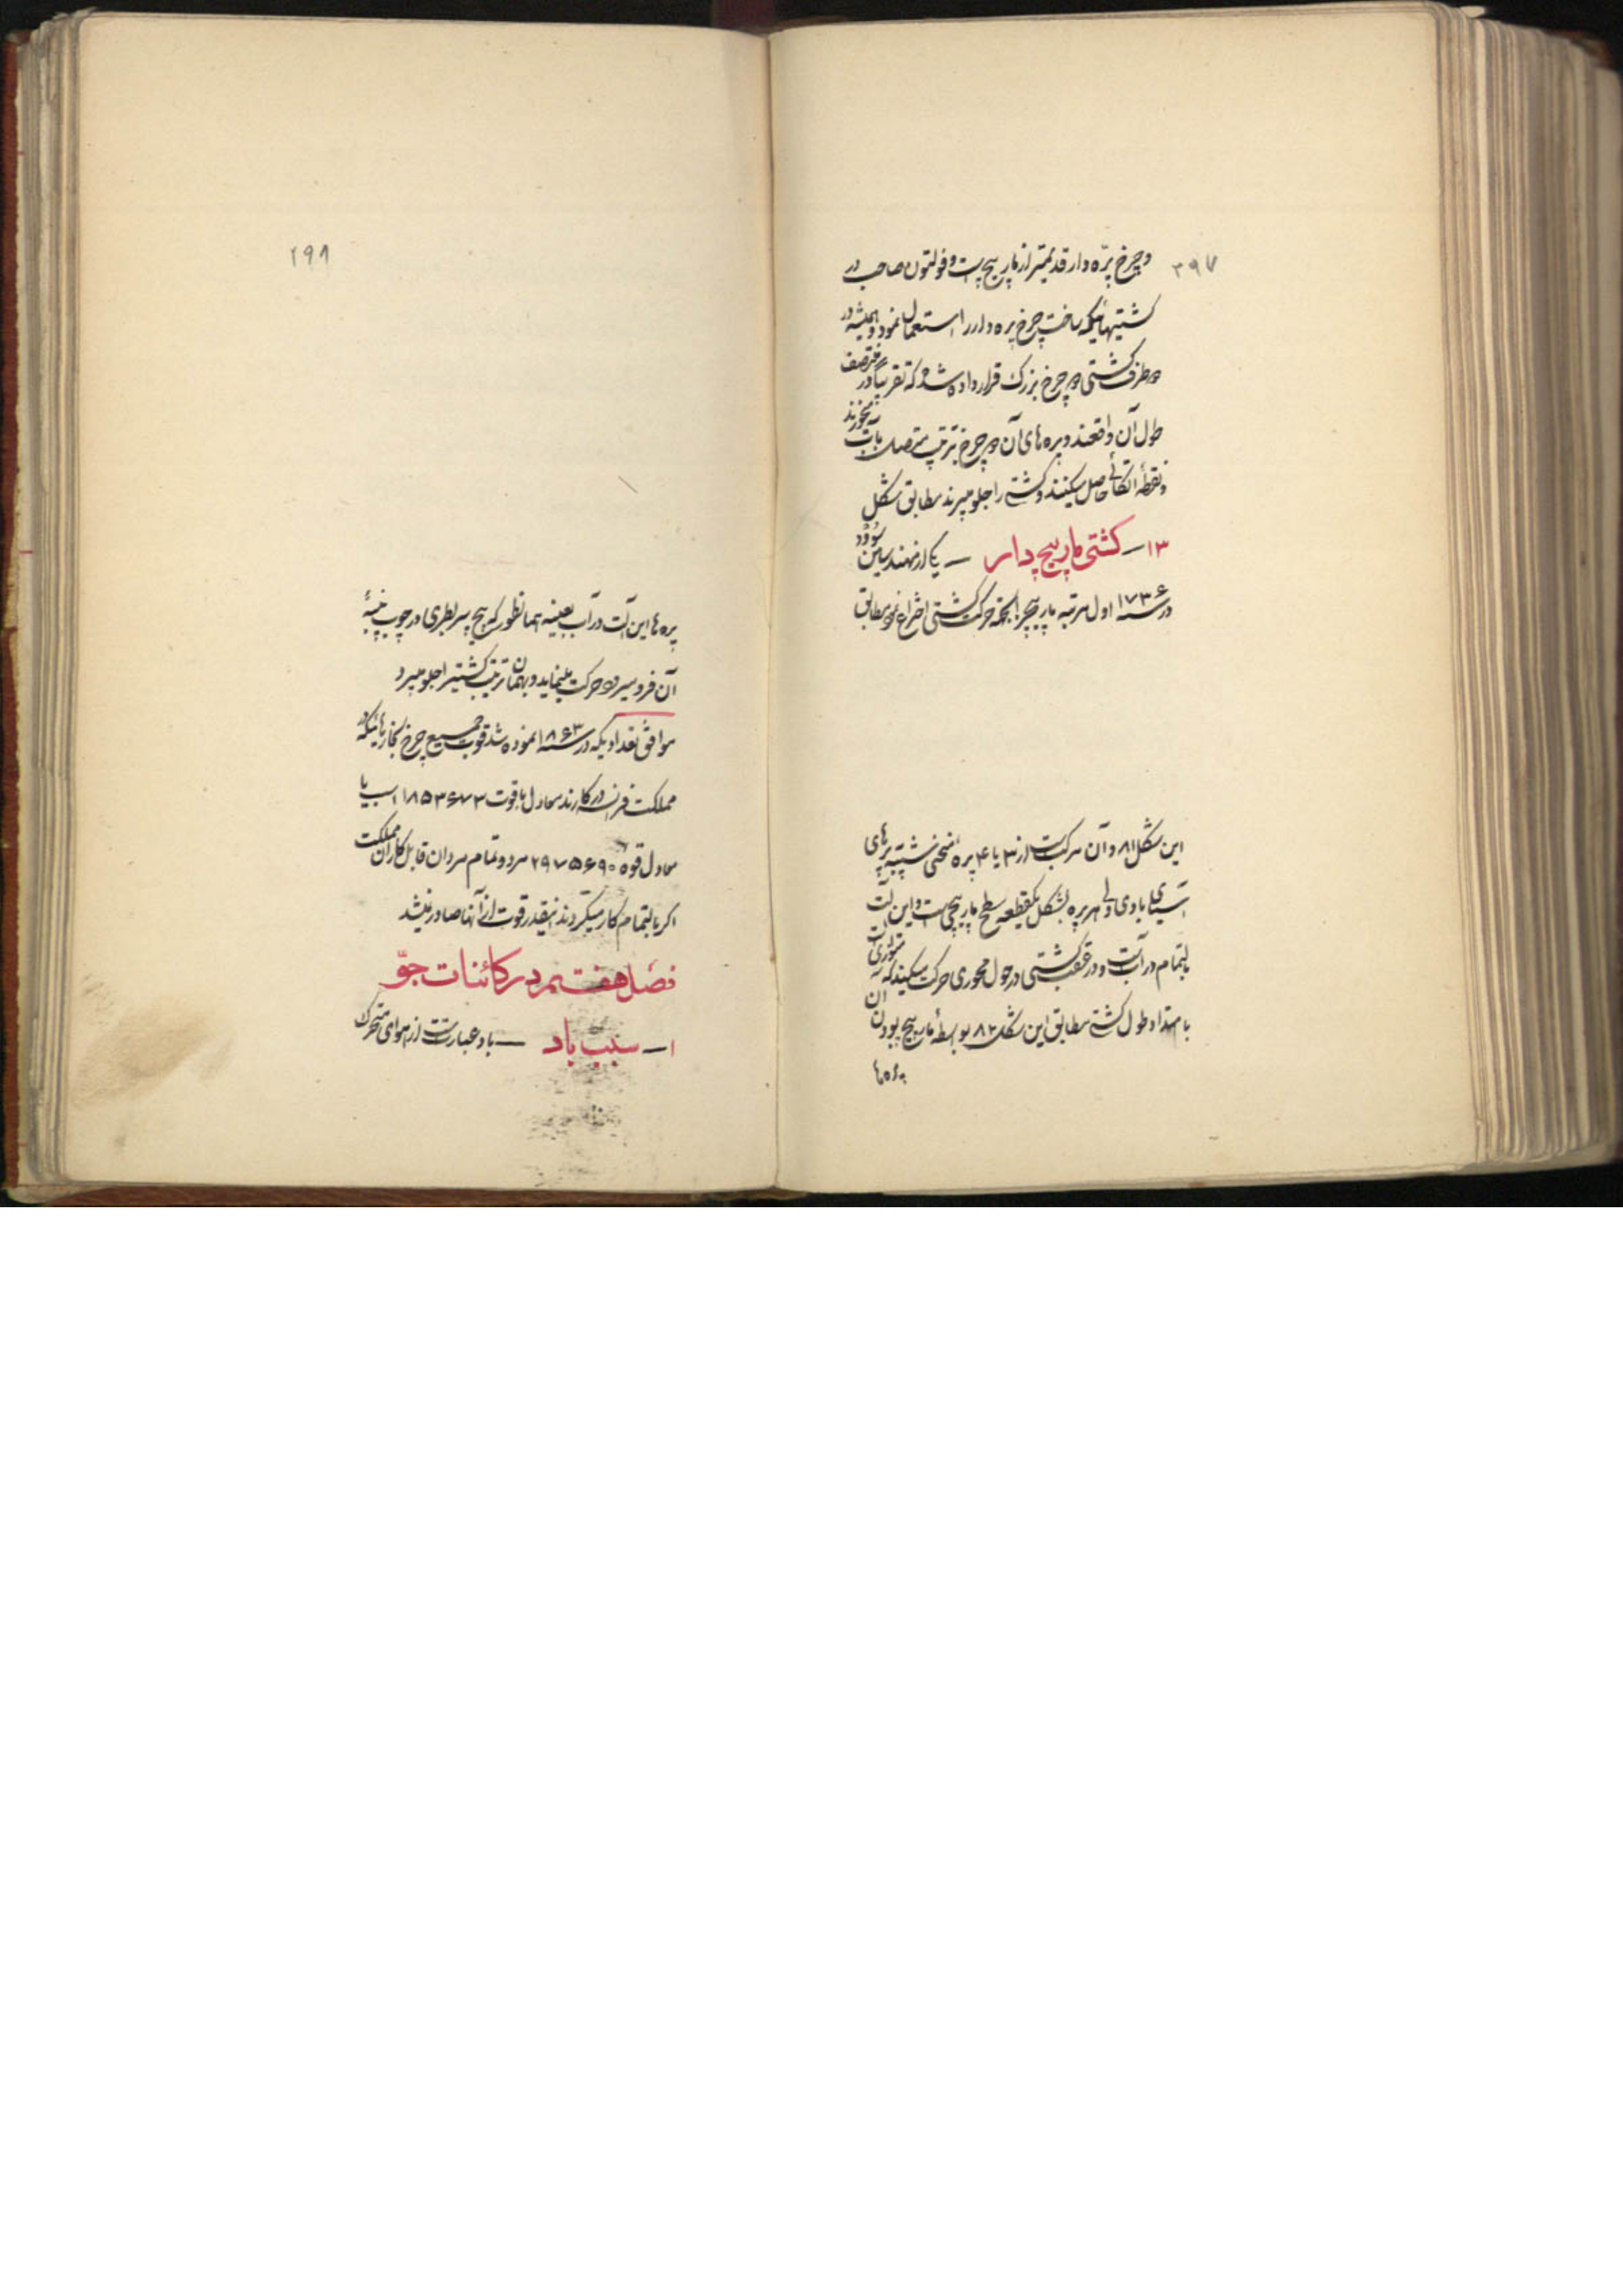 ۲۹۷
و چرخ پرّه دار قدیمتر از مارپیچ است و فولتون صاحب در
کشتیهائیکه ساخت چرخ پره دار را استعمال نمود و همیشه در
دو طرف کشتی دو چرخ بزرک قرار داده شد که تقریباً در منتصف
طول آن واقعند و پره های آن دو چرخ بترتیب متصل بآب میخورند
و نقطهٔ اتکائی حاصل میکنند و کشتی را جلو میبرند مطابق شکل
۱۳ – کشتی مارپیچ دار – یکی از مهندسین سوود
در سنه ۱۷۳۶ اول مرتبه مارپیچ را بجهة حرکت کشتی اختراع نمود مطابق
این شکل ۸۱ و آن مرکب است از ۳ یا ۴ پره منحنی شبیه بپرهای
آسیای بادی ولی هر پره بشکل یکقطعه سطح مارپیچی است و این آلت
بالتمام در آب است و در عقب کشتی در حول محوری حرکت میکند که متوازی است
با امتداد طول کشتی مطابق این شکل ۸۲ بواسطهٔ مارپیچ بودن آن
پره ها
۲۹۸
پره ها این آلت در آب بعینه همانطور که پیچ سر بطری در چوب پنبهٔ
آن فرو میرود حرکت مینماید و بهمان ترتیب کشتیرا جلو میبرد
موافق تعدادیکه در سنه ۱۸۶۳ نموده شد قوت جمیع چرخ بخارهائیکه در
مملکت فرانسه در کارند معادل با قوت ۱۸۵۳۶۷۳ اسب یا
معادل قوه ۲۹۷۵۶۹۰ مرد و تمام مردان قابل کار آن مملکت
اکر بالتمام کار میکردند اینقدر قوت از آنها صادر نمیشد
فصل هفتم در کائنات جوّ
۱ – سبب باد – باد عبارتست از هوای متحرک